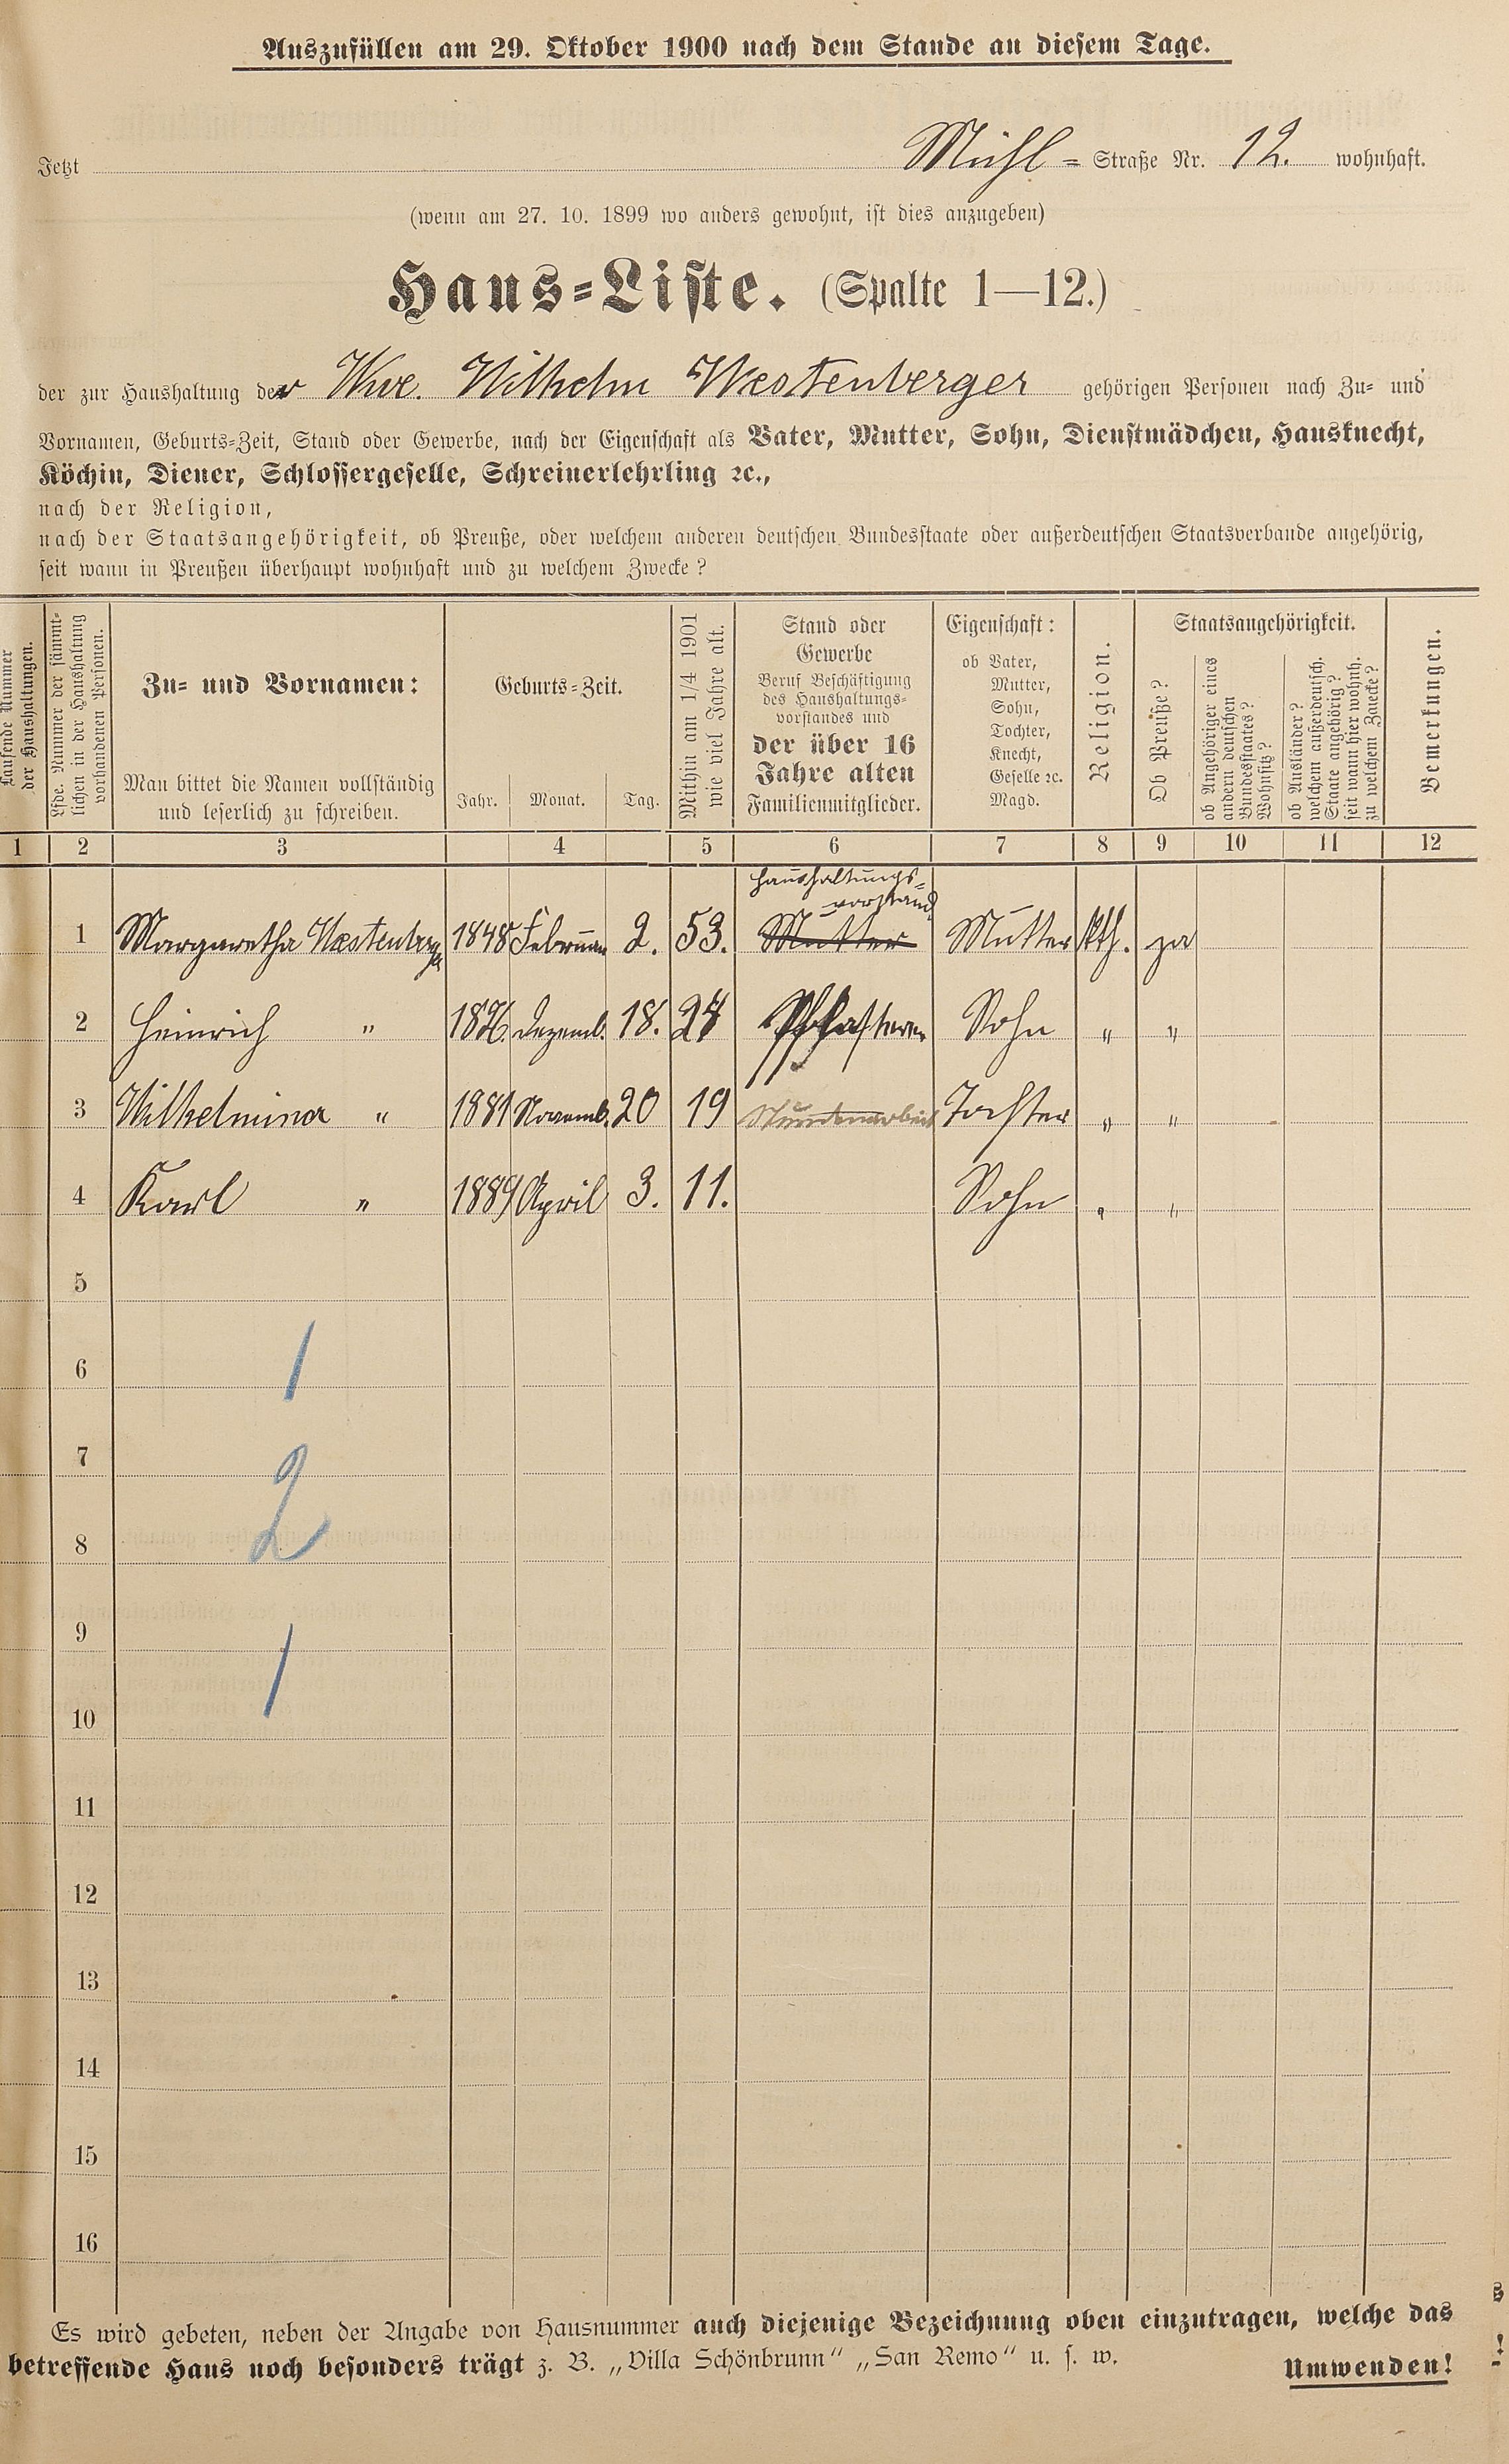 Auszufüllen am 29. Oktober 1900 nach dem Stande an diesem Tage.
Jetzt Mühl= Straße Nr. 12. wohnhaft.
(wenn am 27. 10. 1899 wo anders gewohnt, ist dies anzugeben)
Haus=Liste. (Spalte 1—12.)
der zur Haushaltung der Wwe. Wilhelm Westenberger gehörigen Personen nach Zu= und
Vornamen, Geburts=Zeit, Stand oder Gewerbe, nach der Eigenschaft als Vater, Mutter, Sohn, Dienstmädchen, Hausknecht,
Köchin, Diener, Schlossergeselle, Schreinerlehrling ꝛc.,
nach der Religion,
nach der Staatsangehörigkeit, ob Preuße, oder welchem anderen deutschen Bundesstaate oder außerdeutschen Staatsverbande angehörig,
seit wann in Preußen überhaupt wohnhaft und zu welchem Zwecke?
Laufende Nummer
der Haushaltungen.
Lfde. Nummer der sämmt=
lichen in der Haushaltung
vorhandenen Personen.
Zu= und Vornamen:
Man bittet die Namen vollständig
und leserlich zu schreiben.
Geburts=Zeit.
Jahr. Monat. Tag.
Mithin am 1/4 1901
wie viel Jahre alt.
Stand oder
Gewerbe
Beruf Beschäftigung
des Haushaltungs=
vorstandes und
der über 16
Jahre alten
Familienmitglieder.
Eigenschaft:
ob Vater,
Mutter,
Sohn,
Tochter,
Knecht,
Geselle ꝛc.
Magd.
Religion.
Staatsangehörigkeit.
Ob Preuße?
ob Angehöriger eines
andern deutschen
Bundesstaates?
Wohnsitz?
ob Ausländer?
welchem außerdeutsch.
Staate angehörig?
seit wann hier wohnh.
zu welchem Zwecke?
Bemerkungen.
1 2 3 4 5 6 7 8 9 10 11 12
Haushaltungs=
vorstand
1 Margaretha Westenberger 1848 Februar 2. 53. Mutter Mutter kth. ja
2 Heinrich " 1876. Dezemb. 18. 24 Sohn " "
3 Wilhelmina " 1881 Novemb. 20 19 Tochter " "
4 Karl " 1889 April 3. 11. Sohn " "
5
6
1
7
2
8
9
1
10
11
12
13
14
15
16
Es wird gebeten, neben der Angabe von Hausnummer auch diejenige Bezeichnung oben einzutragen, welche das
betreffende Haus noch besonders trägt z. B. „Villa Schönbrunn“ „San Remo“ u. s. w.
Umwenden!